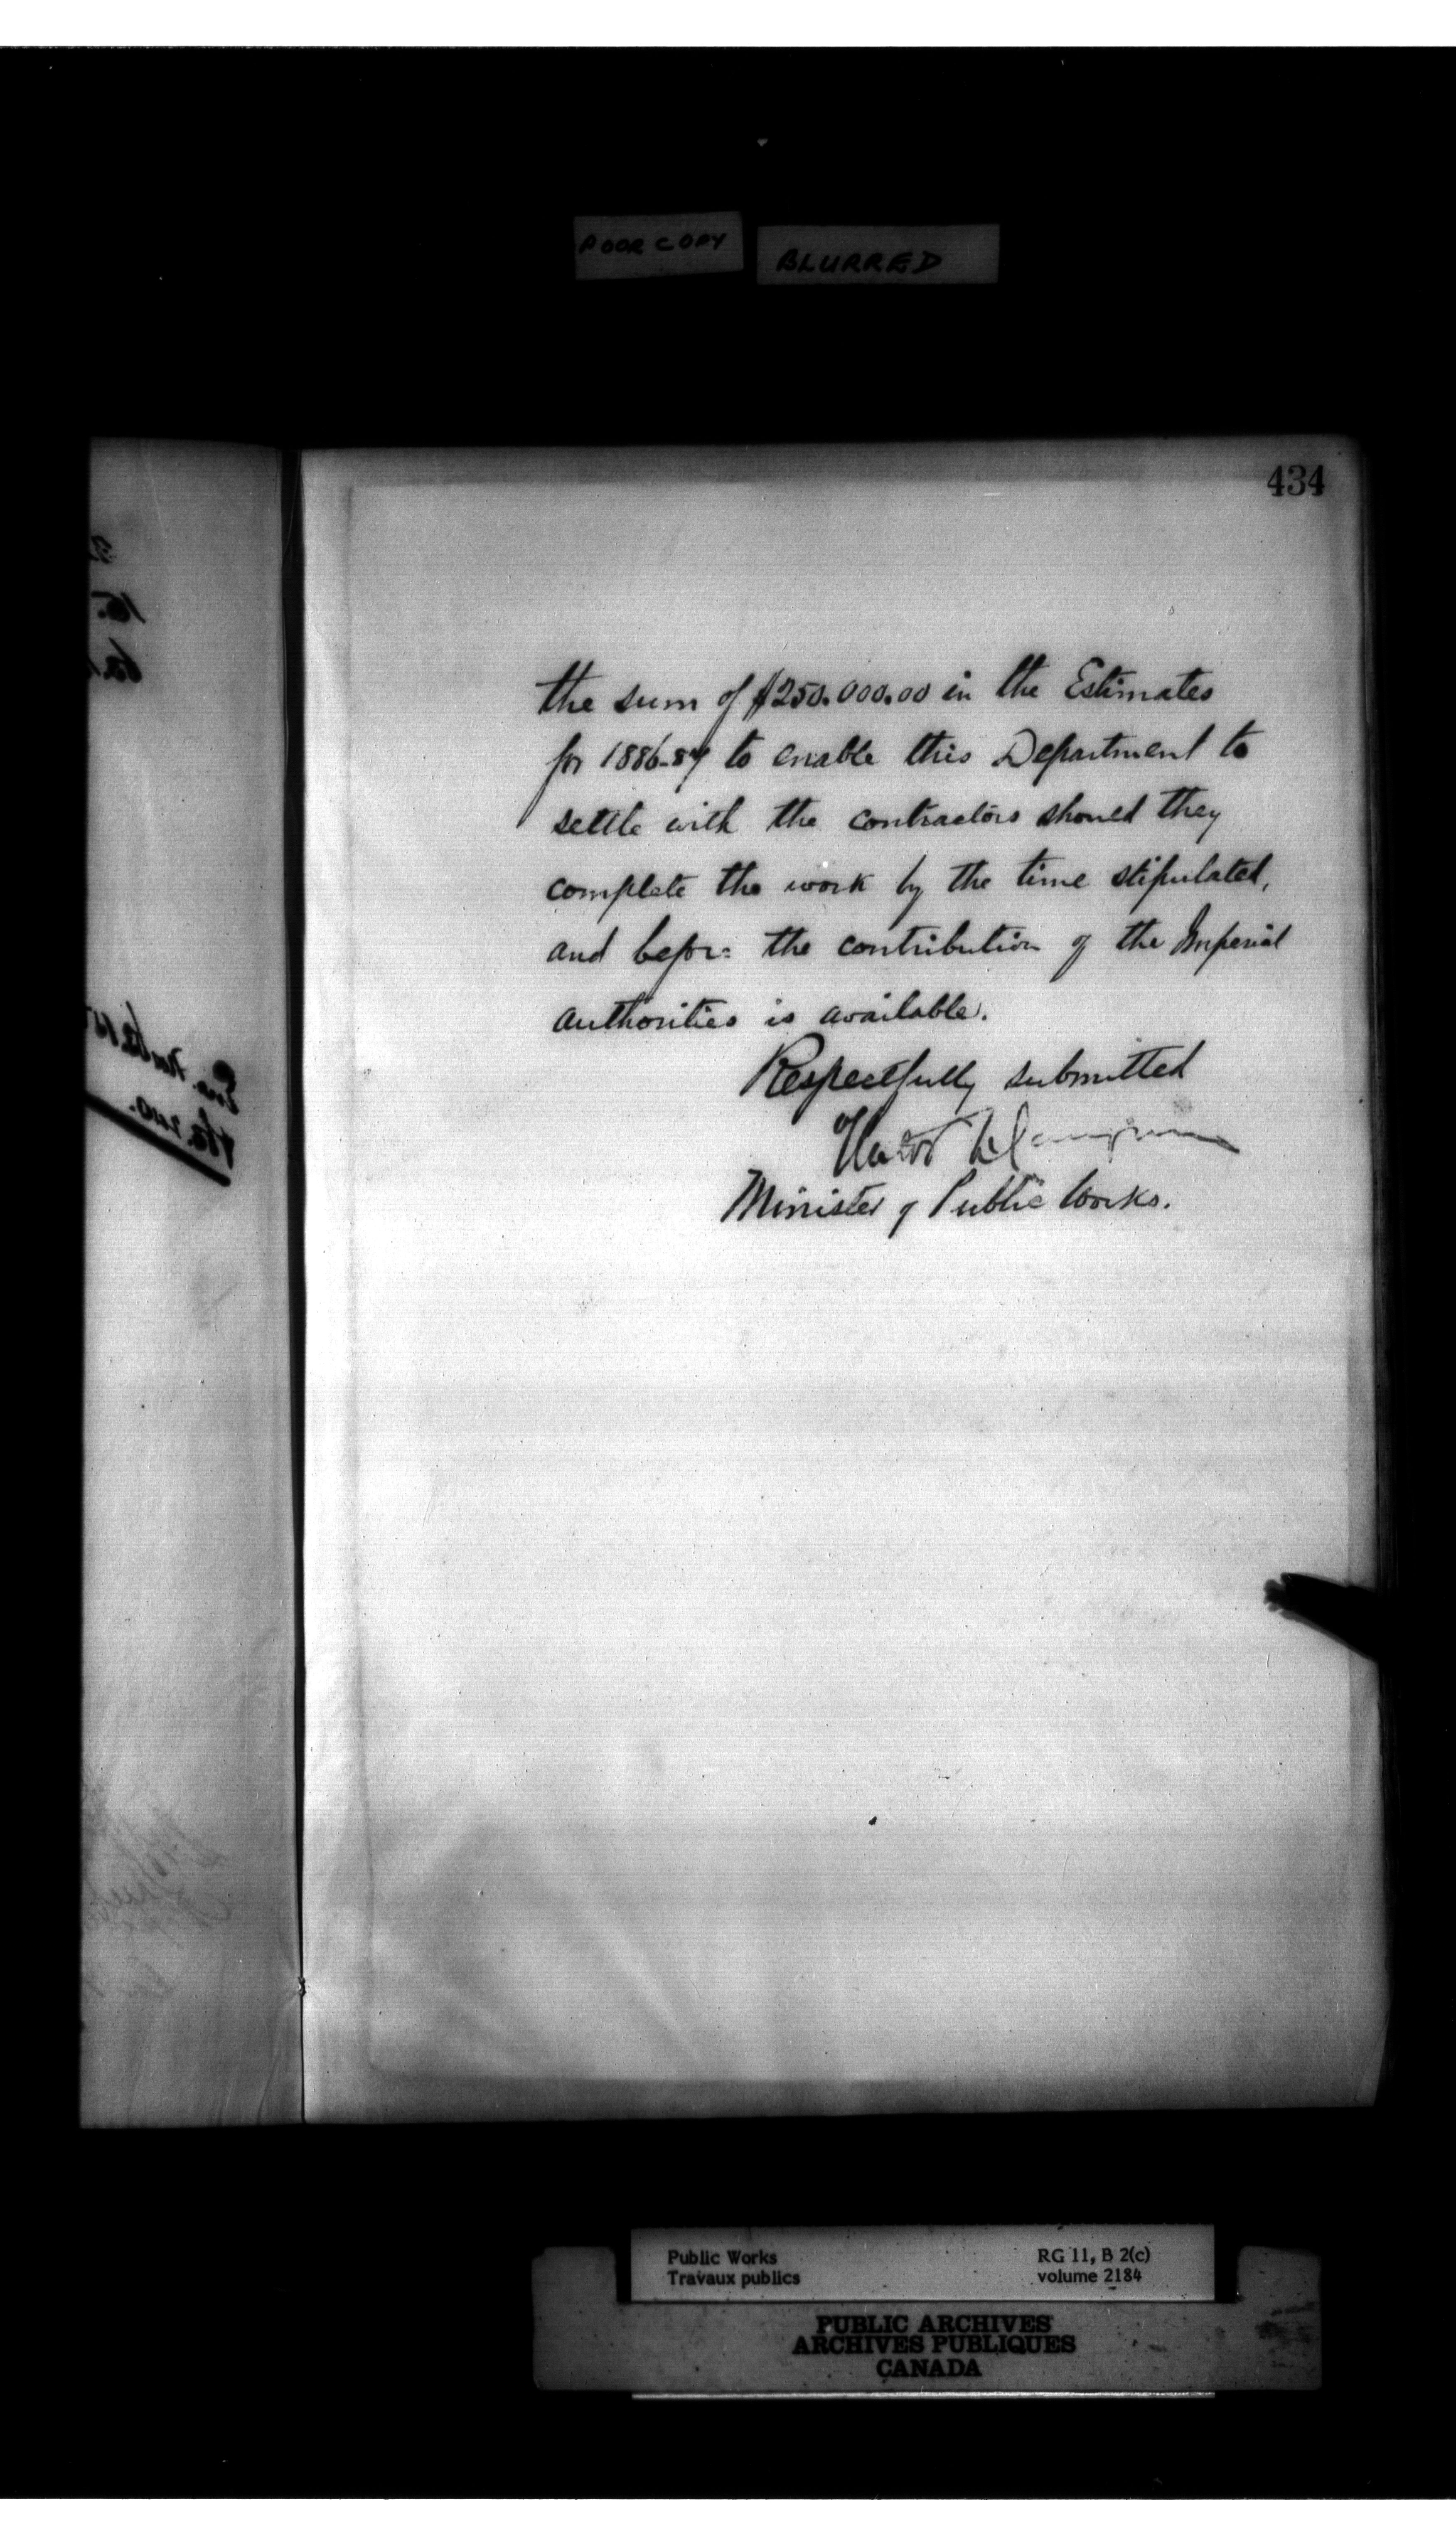 POOR COPY
BLURRED
434
the sum of $250.000.00 in the Estimates
for 1886-87 to enable this Department to
settle with the contractors should they
complete the work by the time stipulated,
and before the contribution of the Imperial
authorities is available.
Respectfully submitted
Minister of Public Works.
Public Works
Travaux publics
RG 11, B 2(c)
volume 2184
PUBLIC ARCHIVES
ARCHIVES PUBLIQUES
CANADA